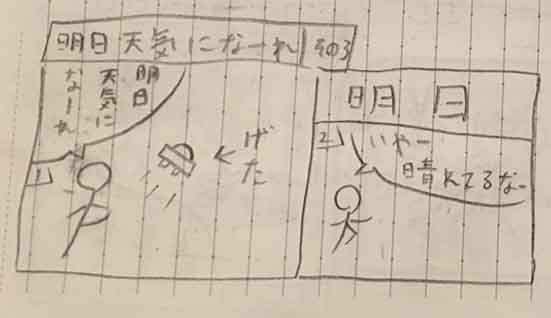 明日天気になーれ その3
1)
明日
天気に
なーれ
げた
←
明日
2)
いやー
晴れてるなー